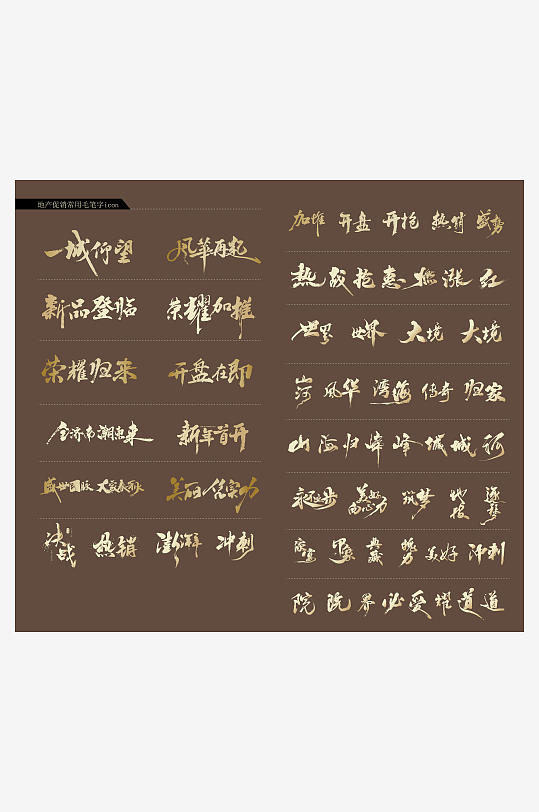 地产促销常用毛笔字icon
一城仰望 风华再起
新品登临 荣耀加推
荣耀归来 开盘在即
全济南潮来 新年首开
盛世国脉 大家 美丽 凭实力
决战 热销 澎湃 冲刺
加推 开盘 开抢 热销 盛势
热 战 抢 惠 燃 涨 红
世界 世界 大境 大境
山河 风华 湾海 传奇 归家
山 海 归 峰 峰 城 城
永不止步 美好向心力 筑梦 逐梦
印象 典藏 魅力 美好 冲刺
院 院 界 必 爱 耀 道 道